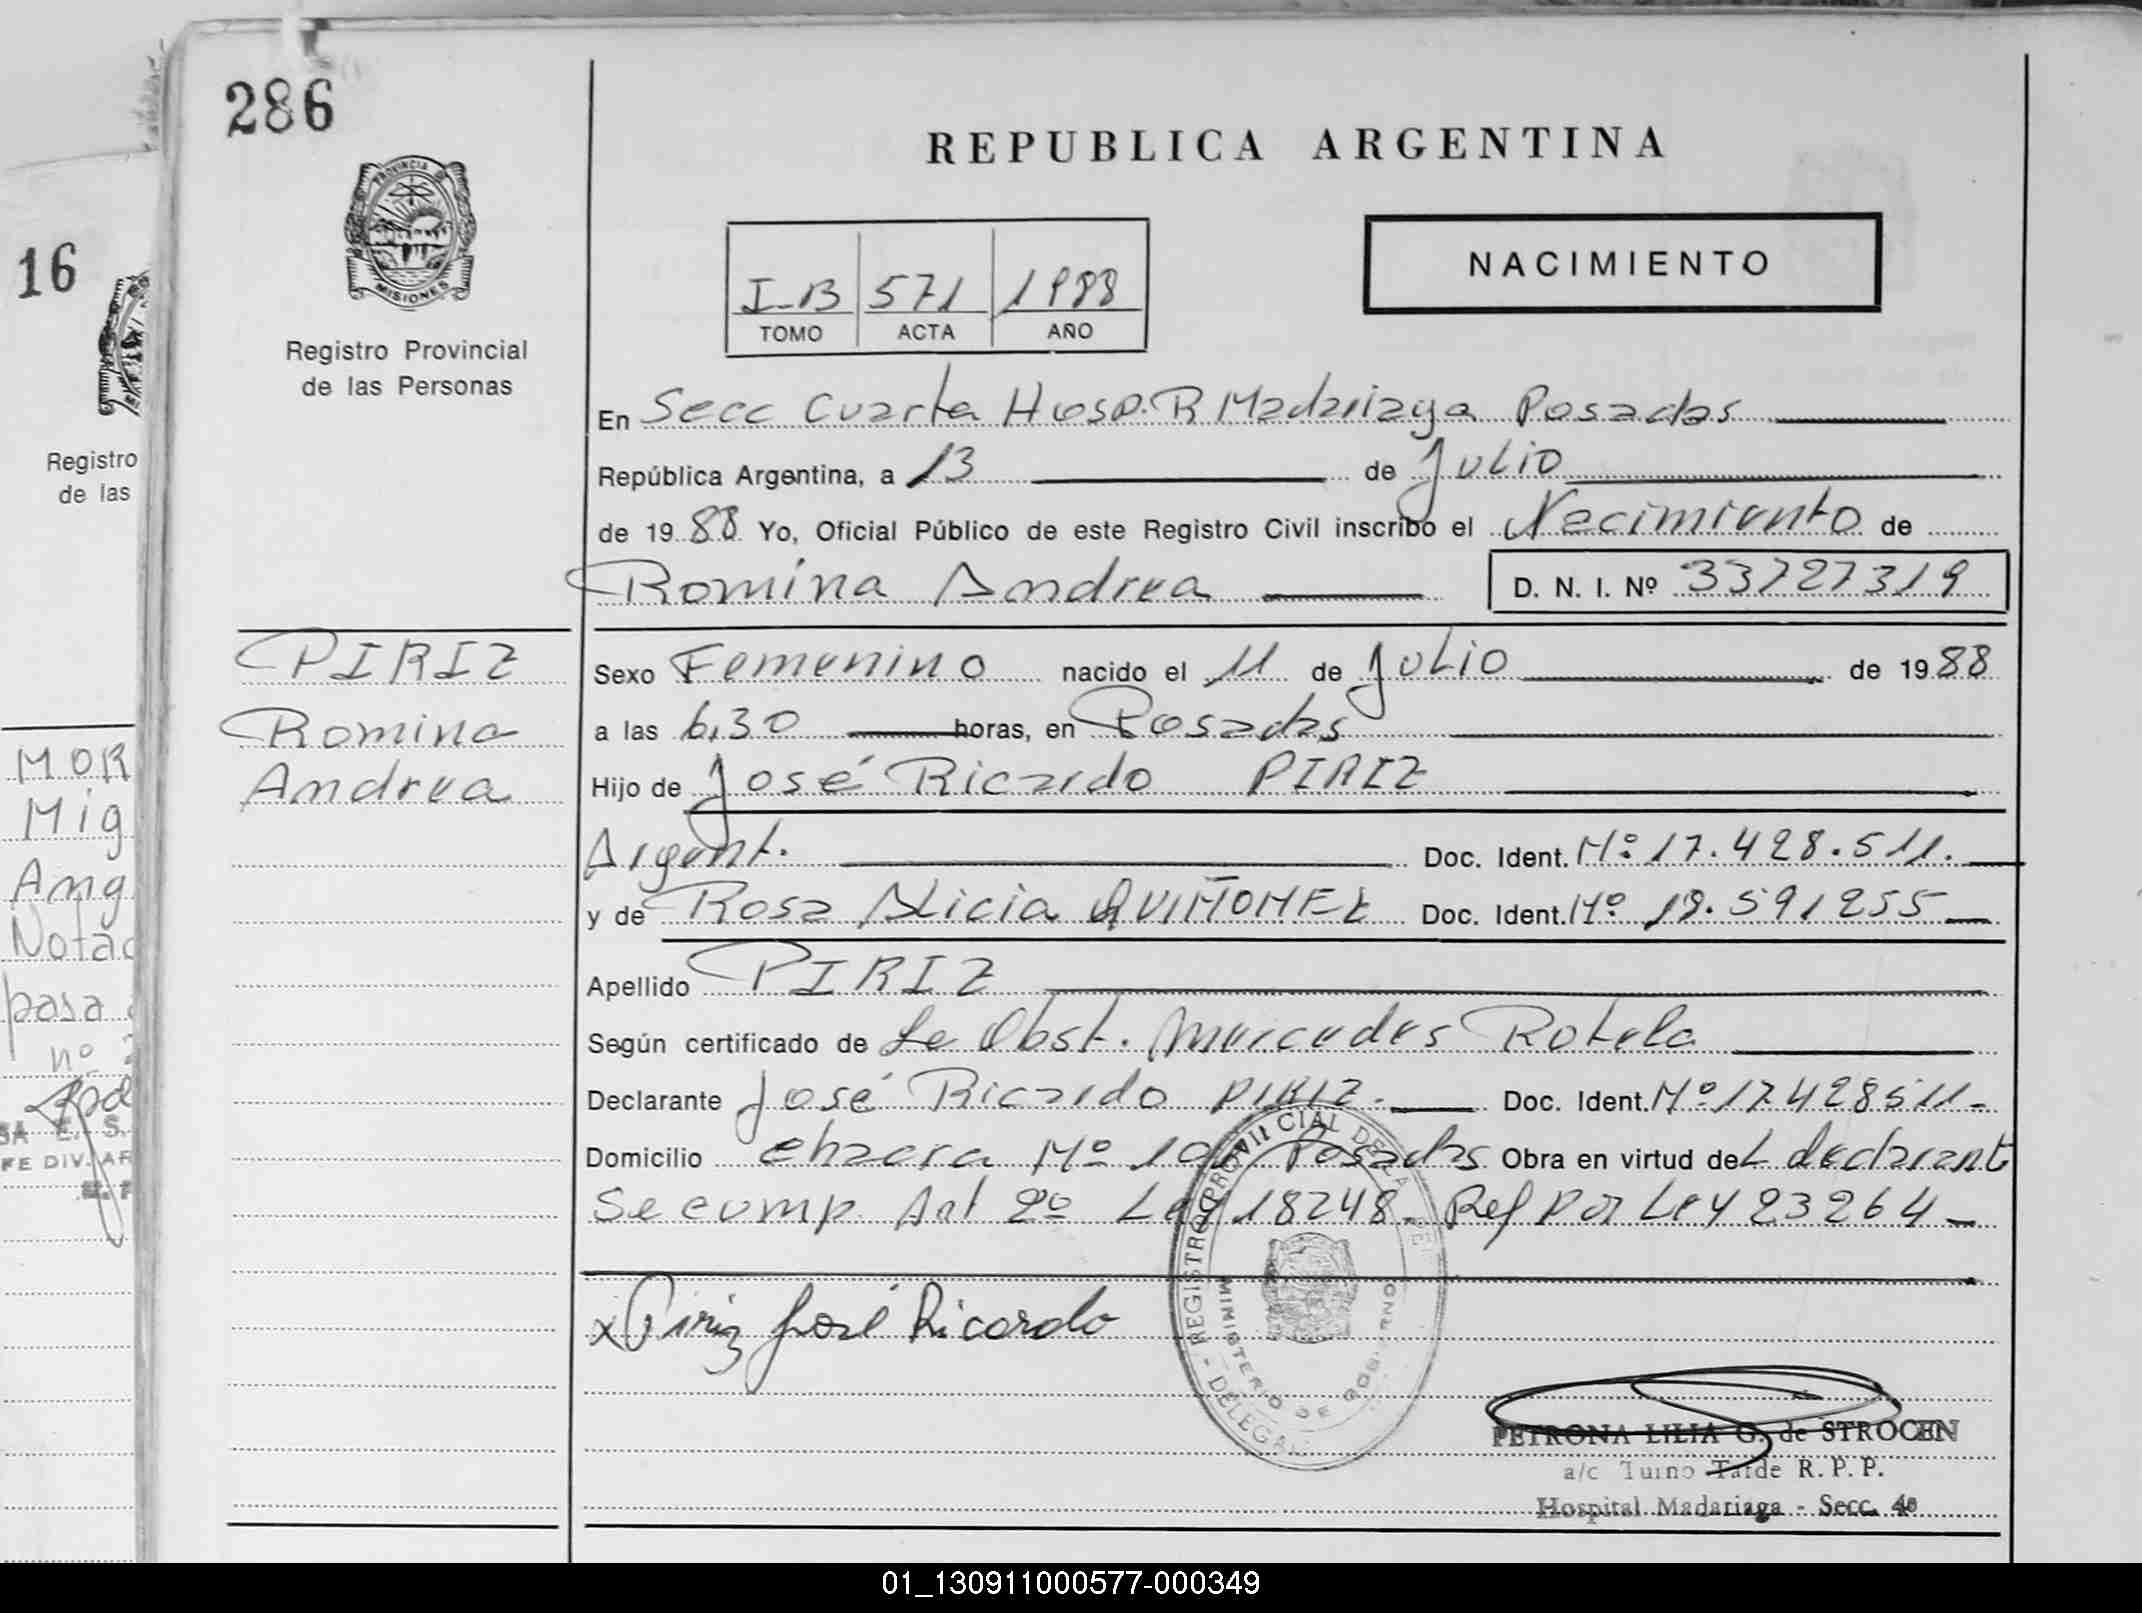 286
PROVINCIA DE
MISIONES
Registro Provincial
de las Personas
REPUBLICA ARGENTINA
NACIMIENTO
I-B 571 1988
TOMO ACTA AÑO
En Secc Cuarta Hosp. R Madariaga Posadas
República Argentina, a 13 de Julio
de 1988 Yo, Oficial Público de este Registro Civil inscribo el Nacimiento de
Romina Andrea D. N. I. Nº 33727319
PIRIZ
Romina
Andrea
Sexo Femenino nacido el 11 de Julio de 1988
a las 6,30 horas, en Posadas
Hijo de José Ricardo PIRIZ
Argent. Doc. Ident. Nº 17.428.511.
y de Rosa Alicia QUIÑONEZ Doc. Ident. Nº 19.591255
Apellido PIRIZ
Según certificado de La Obst. Mercedes Rotela
Declarante José Ricardo PIRIZ. Doc. Ident. Nº 17.428511-
Domicilio Chacra Nº Posadas Obra en virtud del declarant
Se cump Art 2º Ley 18248. Ref por Ley 23264
x Piriz José Ricardo
REGISTRO PROVINCIAL DE LAS PE
MINISTERIO DE GOBIERNO
DELEGA
PETRONA LILIA G. de STROCEN
a/c Turno Tarde R. P. P.
Hospital Madariaga - Secc. 4a
16
Registro
de las
MOR
Mig
Ang
Nota
pasa
nº
E. S.
FE DIV. AR
01_130911000577-000349